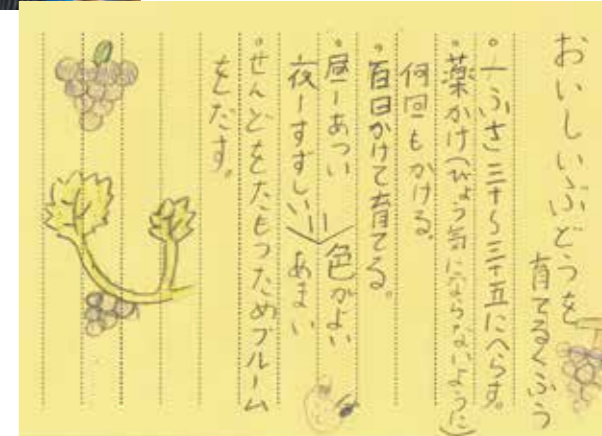 おいしいぶどうを
育てるくふう
。一ふさ三十〜三十五にへらす。
。薬かけ(びょう気にならないように)
何回もかける。
。百日かけて育てる。
。昼ーあつい
夜ーすずしい
色がよい
あまい
。せんどをたもつためブルーム
をだす。